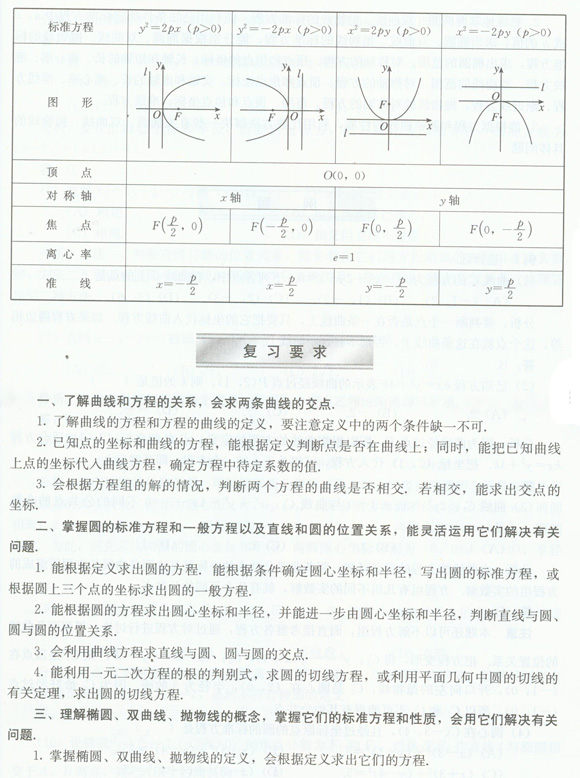 标准方程 y²=2px (p>0) y²=-2px (p>0) x²=2py (p>0) x²=-2py (p>0)
图 形
l y O F x
y l F O x
y F O x l
y l O x F
顶 点 O(0, 0)
对 称 轴 x 轴 y 轴
焦 点 F(p/2, 0) F(-p/2, 0) F(0, p/2) F(0, -p/2)
离 心 率 e=1
准 线 x=-p/2 x=p/2 y=-p/2 y=p/2
复 习 要 求
一、了解曲线和方程的关系，会求两条曲线的交点.
1. 了解曲线的方程和方程的曲线的定义，要注意定义中的两个条件缺一不可.
2. 已知点的坐标和曲线的方程，能根据定义判断点是否在曲线上；同时，能把已知曲线
上点的坐标代入曲线方程，确定方程中待定系数的值.
3. 会根据方程组的解的情况，判断两个方程的曲线是否相交. 若相交，能求出交点的
坐标.
二、掌握圆的标准方程和一般方程以及直线和圆的位置关系，能灵活运用它们解决有关
问题.
1. 能根据定义求出圆的方程. 能根据条件确定圆心坐标和半径，写出圆的标准方程，或
根据圆上三个点的坐标求出圆的一般方程.
2. 能根据圆的方程求出圆心坐标和半径，并能进一步由圆心坐标和半径，判断直线与圆、
圆与圆的位置关系.
3. 会利用曲线方程求直线与圆、圆与圆的交点.
4. 能利用一元二次方程的根的判别式，求圆的切线方程，或利用平面几何中圆的切线的
有关定理，求出圆的切线方程.
三、理解椭圆、双曲线、抛物线的概念，掌握它们的标准方程和性质，会用它们解决有关
问题.
1. 掌握椭圆、双曲线、抛物线的定义，会根据定义求出它们的方程.